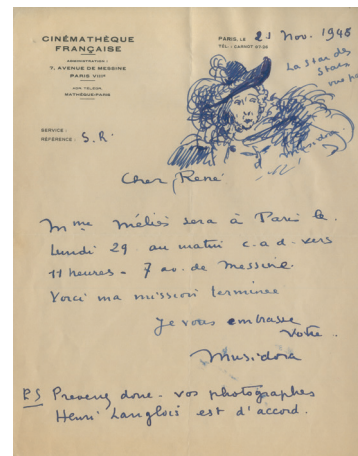 CINÉMATHÈQUE
FRANÇAISE
ADMINISTRATION :
7, AVENUE DE MESSINE
PARIS VIIIe
ADR. TÉLÉGR.
MATHÈQUE-PARIS
PARIS, LE 21 Nov. 1948
TÉL. : CARNOT 07-26
La Star des
Stars
vue pa
SERVICE :
RÉFÉRENCE : S. R.
Musidora
Cher René
Mme Méliès sera à Paris le
lundi 29 au matin c.a.d. vers
11 heures - 7 av. de Messine.
Voici ma mission terminée
Je vous embrasse
Votre
Musidora
PS Prevenez donc - vos photographes
Henri Langlois est d'accord.